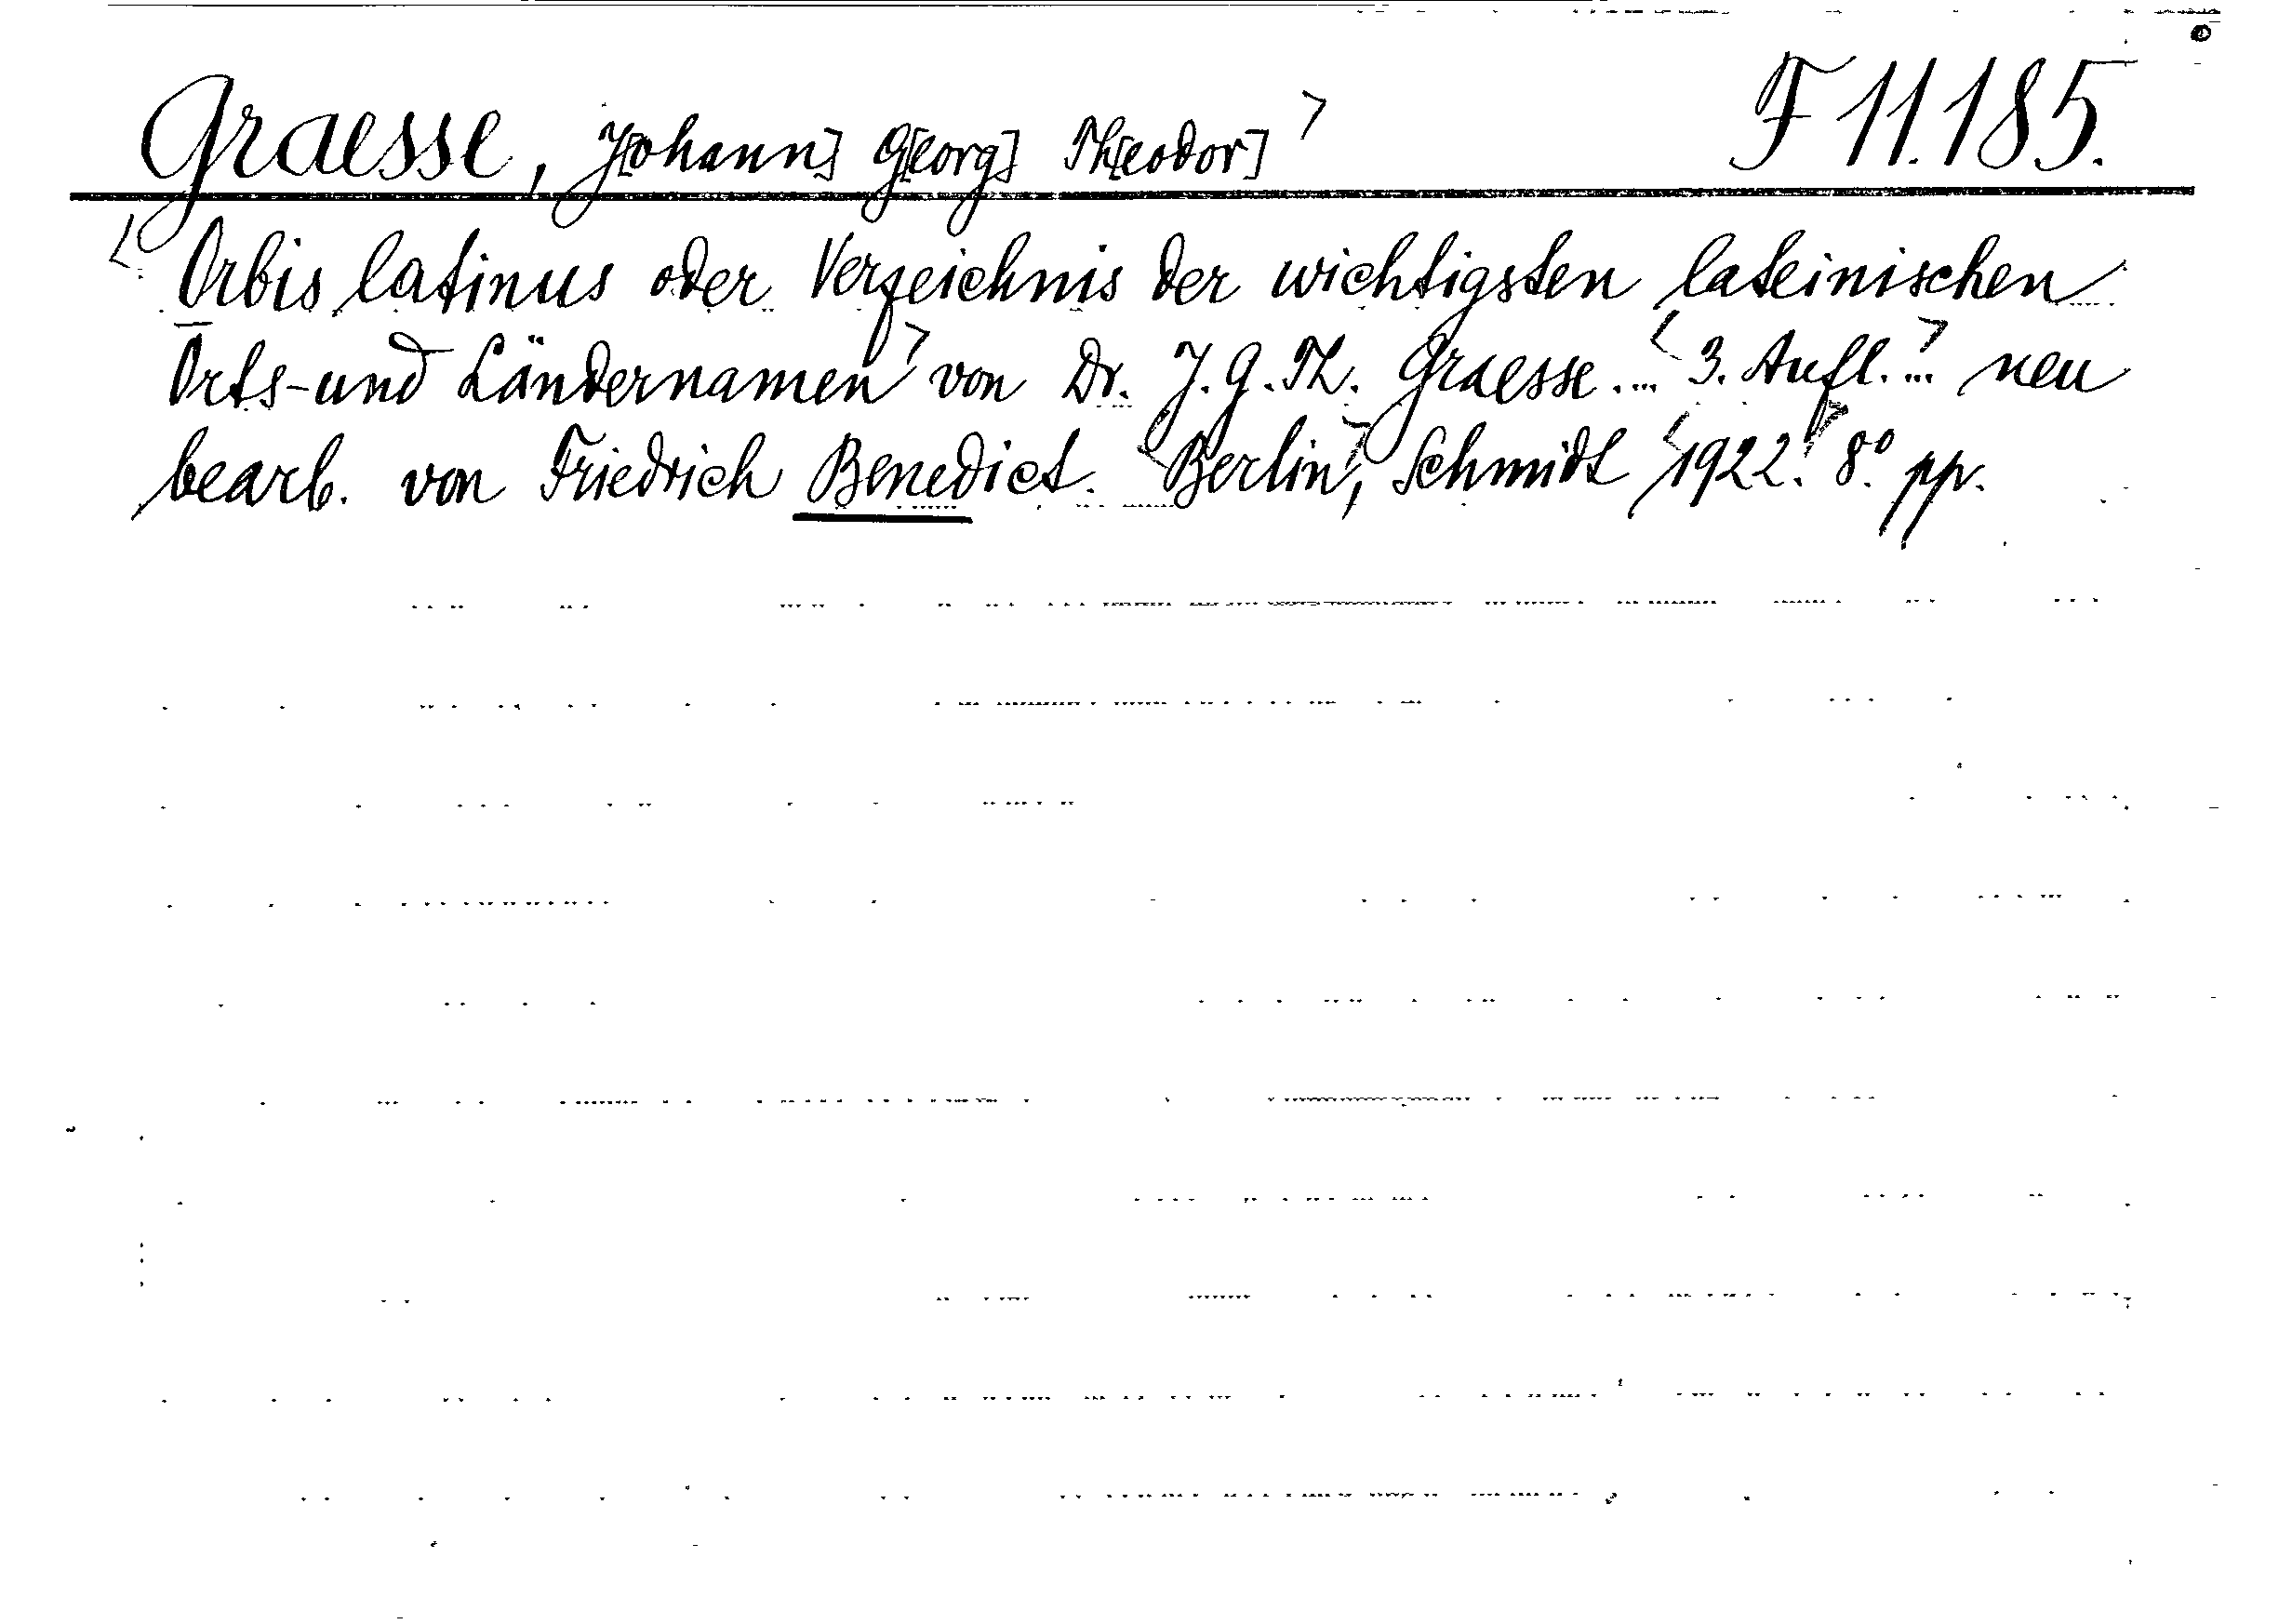 Graesse, J[ohann] G[eorg] Th[eodor]> F 11.185.
<Orbis latinus oder Verzeichnis der wichtigsten lateinischen
Orts- und Ländernamen> von Dr. J. G. Th. Graesse. ... <3. Aufl. ...> neu
bearb. von Friedrich Benedict. <Berlin>, Schmidt <1922.> 8° pp.